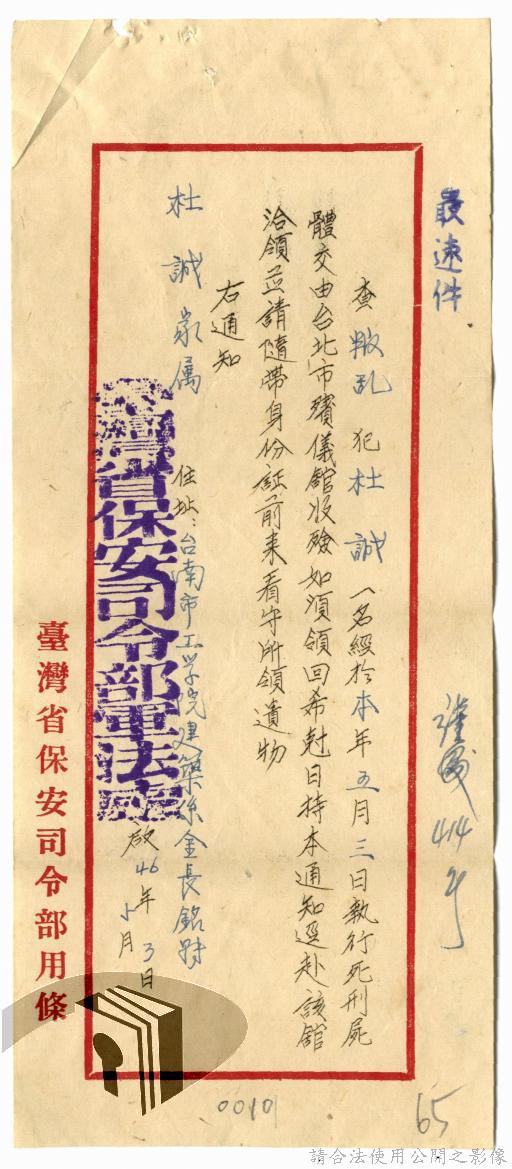 最速件
查叛乱犯杜誠一名經於本年五月三日執行死刑屍
體交由台北市殯儀館收殮如須領回希尅日持本通知逕赴該館
洽領並請隨帶身份証前来看守所領遺物
右通知
杜誠家属
住址：台南市工学院建築系金長銘
臺灣省保安司令部軍法處
啟46年5月3日
臺灣省保安司令部用條
0010
65
請合法使用公開之影像